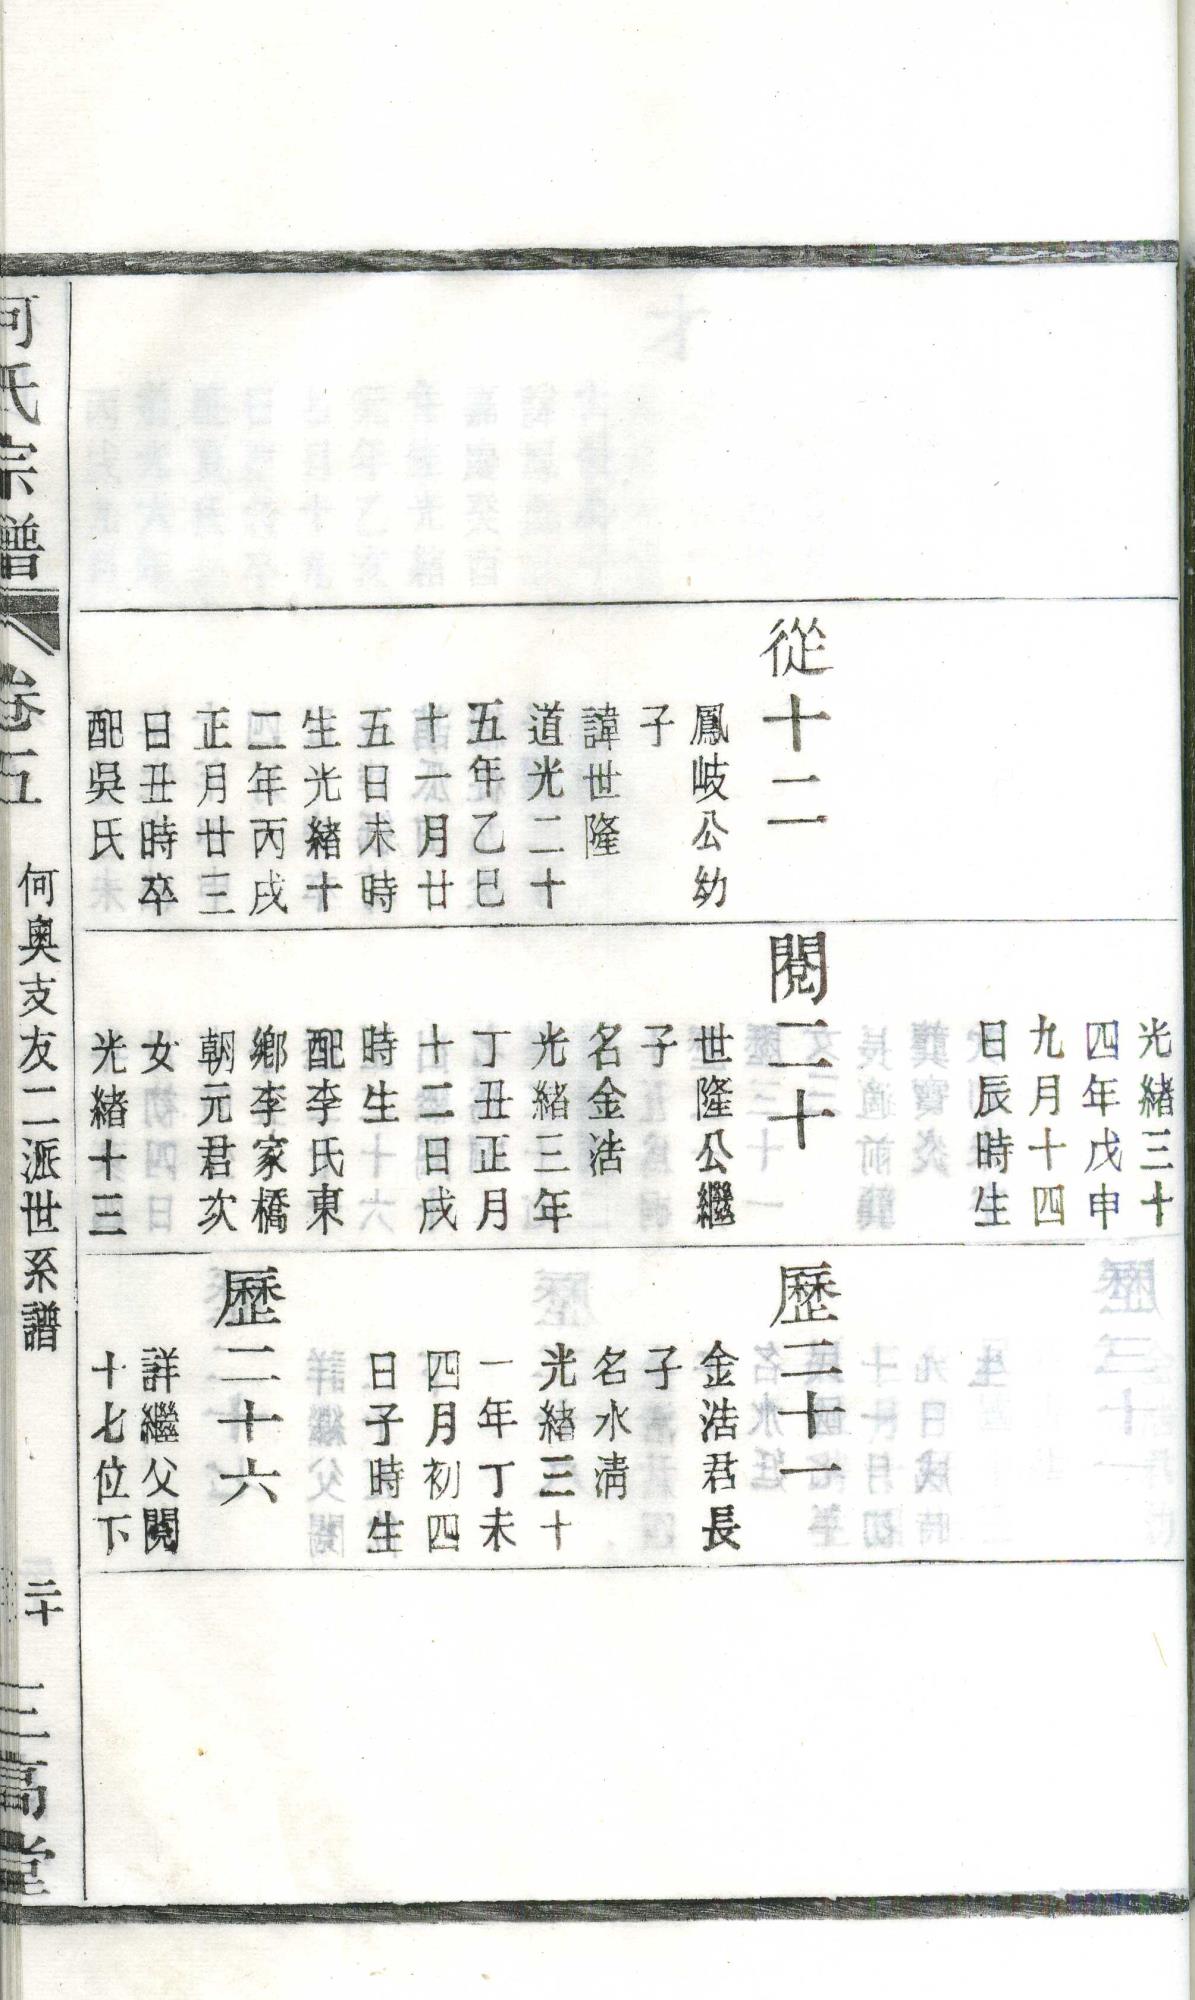 從十二
鳳岐公幼
子
諱世隆
道光二十
五年乙巳
十一月廿
五日未時
生光緒十
二年丙戌
正月廿三
日丑時卒
配吳氏
光緒三十
四年戊申
九月十四
日辰時生
閱二十
世隆公繼
子
名金浩
光緒三年
丁丑正月
十二日戌
時生
配李氏東
鄉李家橋
朝元君次
女
光緒十三
歷二十一
金浩君長
子
名水清
光緒三十
一年丁未
四月初四
日子時生
歷二十六
詳繼父閱
十七位下
何氏宗譜
卷五
何奧支友二派世系譜
二十
三高堂